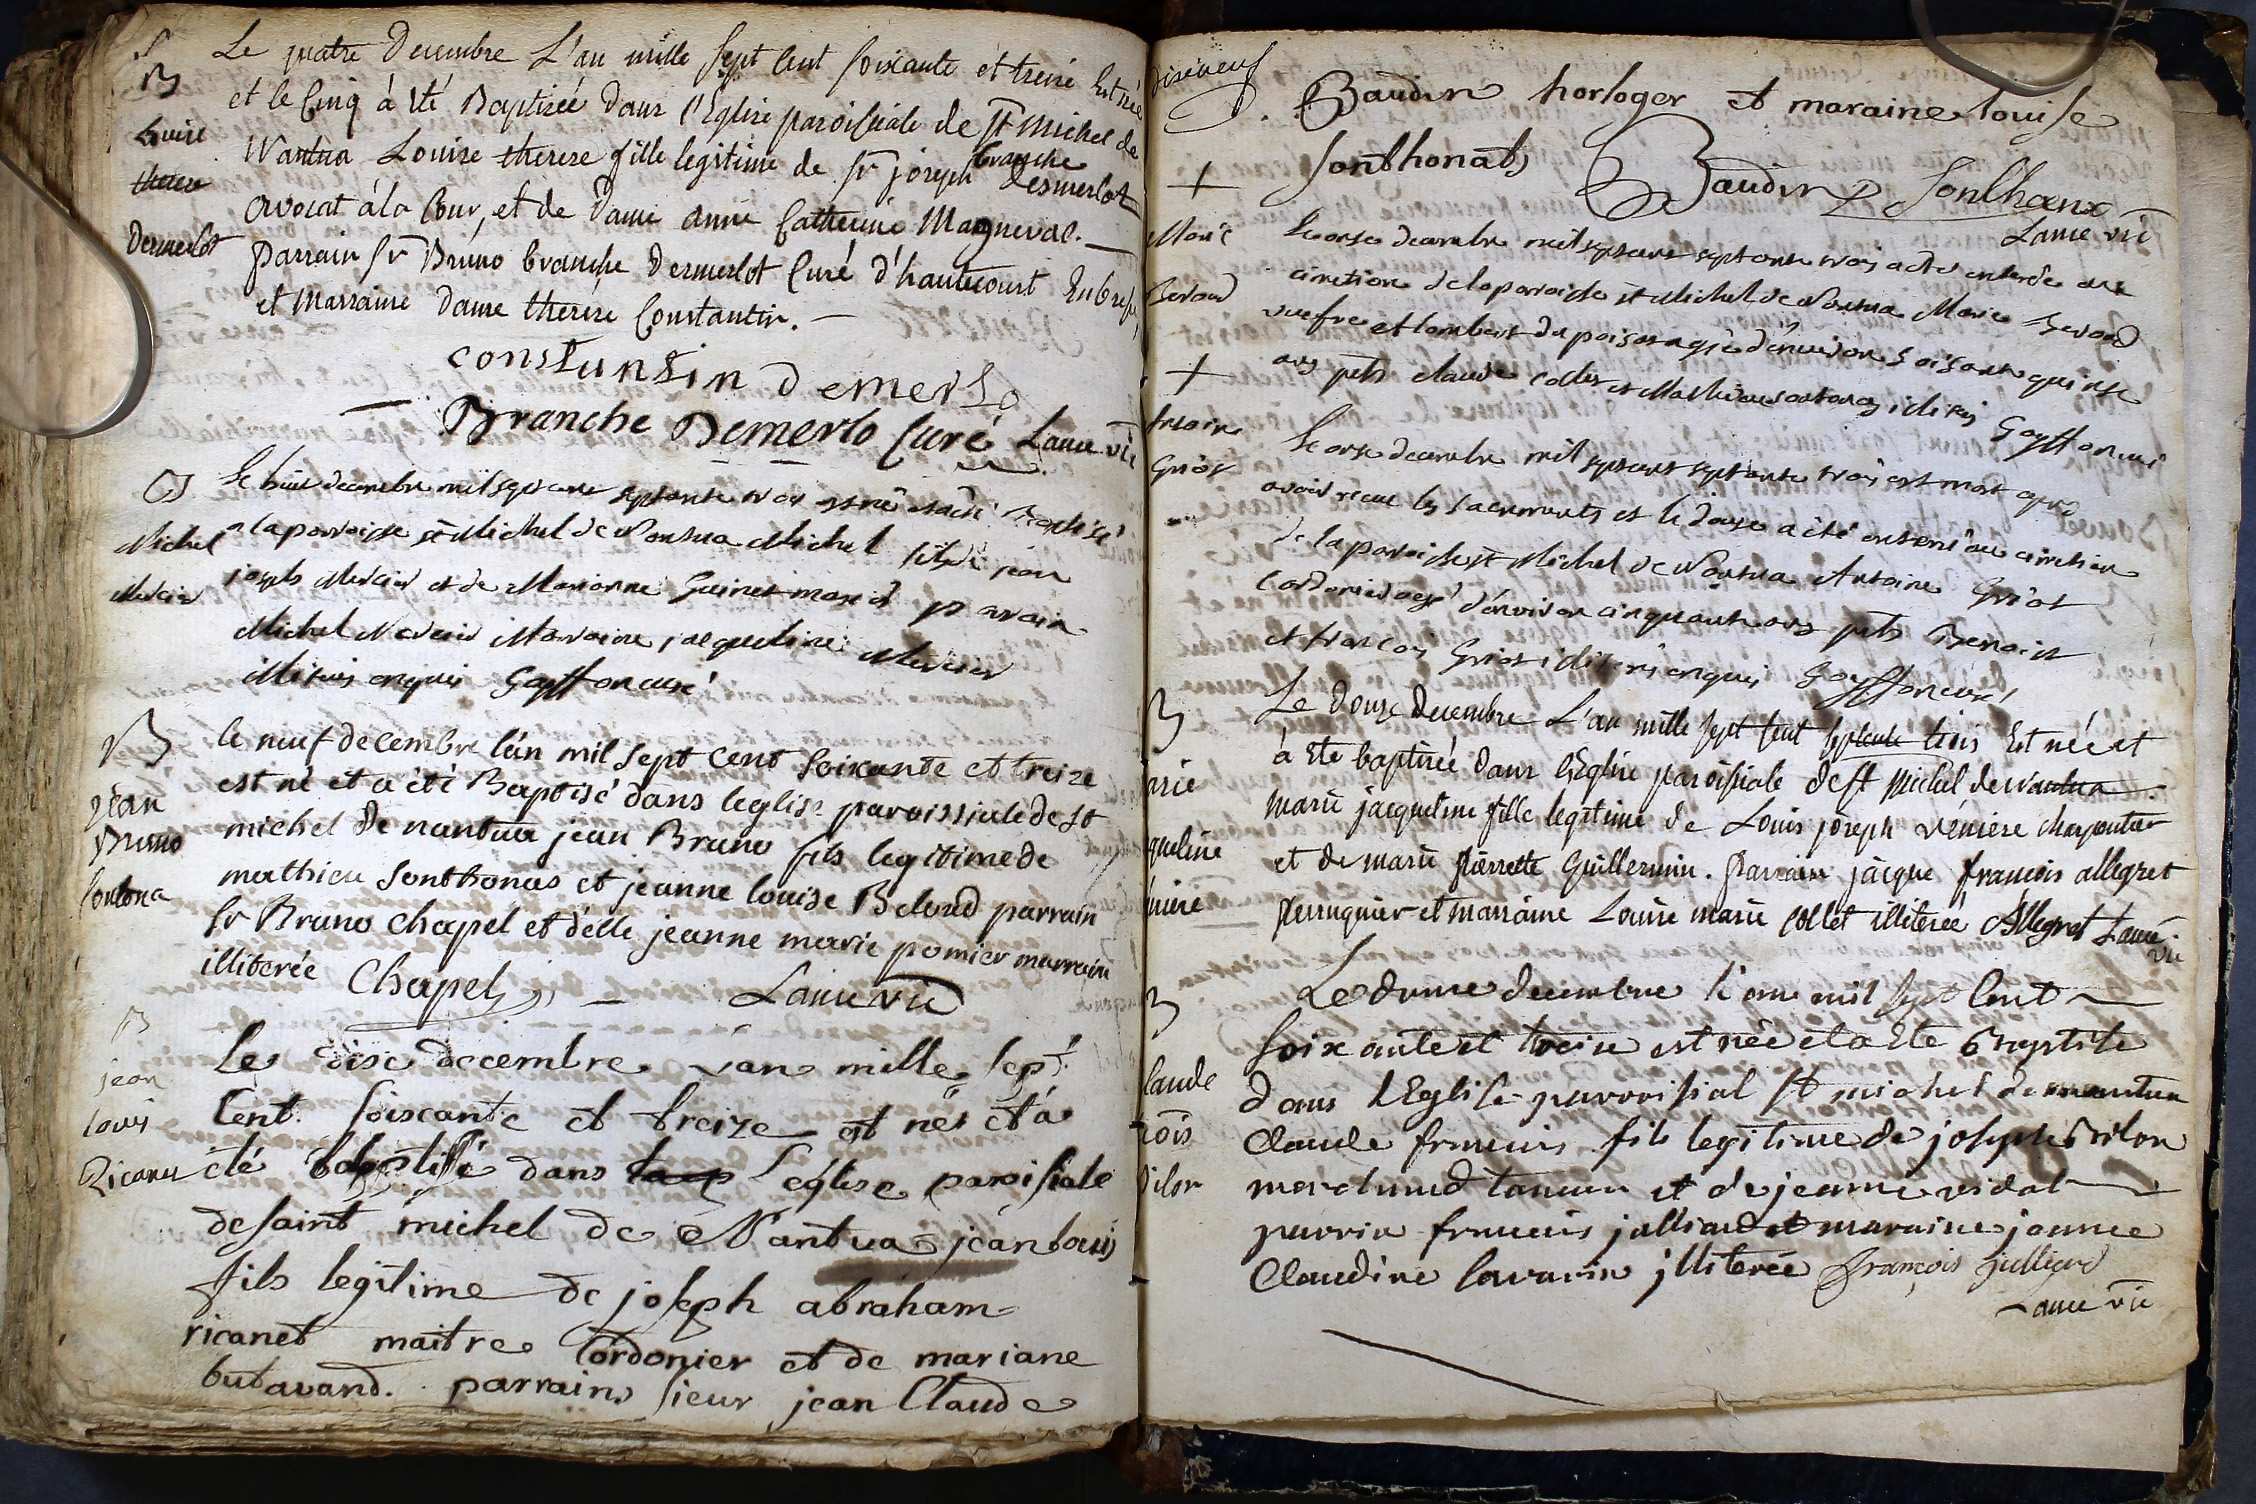 B
Louise
therese
Demerlot
Le quatre Decembre L'an mille Sept Cent Soixante et treize Est née
et le Cinq à été Baptizée dans l'Eglise paroissiale de st Michel de
Nantua Louise therese fille legitime de Sr joseph branche Desmerlot
avocat à la Cour, et de Dame anne Catherine Magneval.
parrain Sr Bruno branche Demerlot Curé d'hautecourt
et Marraine Dame therese Constantin.
constantin demerlo
Branche Demerlo Curé Lanu vic
B
Michel
Mercier
Le huit decembre mil sept cent septante trois est né et a été baptisé
a la paroisse st Michel de Nantua Michel fils de jean
joseph Mercier et de Marianne Guinet mariés parrain
Michel Mercier Marraine jacqueline Mercier
illitirés enquis Gayffon curé
B
jean
Bruno
Sontona
le neuf decembre l'an mil sept cent soixante et treize
est né et a été Baptisé dans l'eglise paroissiale de st
michel de nantua jean Bruno fils legitime de
mathieu Sonthonas et jeanne louise Beloud parrain
Sr Bruno Chapel et d'elle jeanne marie pomier marraine
illiterée Chapel Lanu vic
B
jean
louis
Ricanet
Le dixe decembre l'an mille sept
Cent soixante et treize est nés et à
été baptissé dans l'eglise paroissiale
de saint michel de Nantua jean louis
fils legitime de joseph abraham
ricanet maitre Cordonier et de mariane
butavand. parrain sieur jean Claude
dixeneuf
Baudin horloger et maraine louise
Sonthonats Baudin L Sonthonax
Lanu vic
+
Marie
Berod
Le onze decembre mil sept cent septante trois a été enterée au
cimetiere de la paroisse st Michel de Nantua Marie Berod
veufve et lambert du poisat agée d'environ soisante quinse
ans pnts claude collet et Mathieu sontonas illitirés Gayffon curé
+
Antoine
Griot
Le onze decembre mil sept cent septante trois est mort apres
avoir recue les sacrements et le douse a été enterré au cimetiere
de la paroisse st Michel de Nantua Antoine Griot
Cordonier agé d'environ cinquante ans pnts Benoist
et francois Griot illitirés enquis Gayffon curé
B
arie
queline
niere
Le douze Decembre L'an mille sept Cent septante trois Est née et
à Eté baptizée dans l'Eglise paroissiale de St Michel de Nantua
marie jacqueline fille legitime de Louis joseph véniere charpentier
et de marie pierrette Guillermin. parrain jacque francois allegret
perruquier et marraine Louise marie collet illiterée Allegret Lanu
vic
B
laude
cois
Le douze decembre l'an mil sept Cent
soixante et treize est née et a Eté Baptisé
dans l'Eglise parroissial St michel de nantua
Claude francois fils legitime de joseph
marchand taneur et de jeanne vidal
parrin francois julliard et maraine jeanne
Claudine Savarin jlliterée françois julliard
Lanu vic